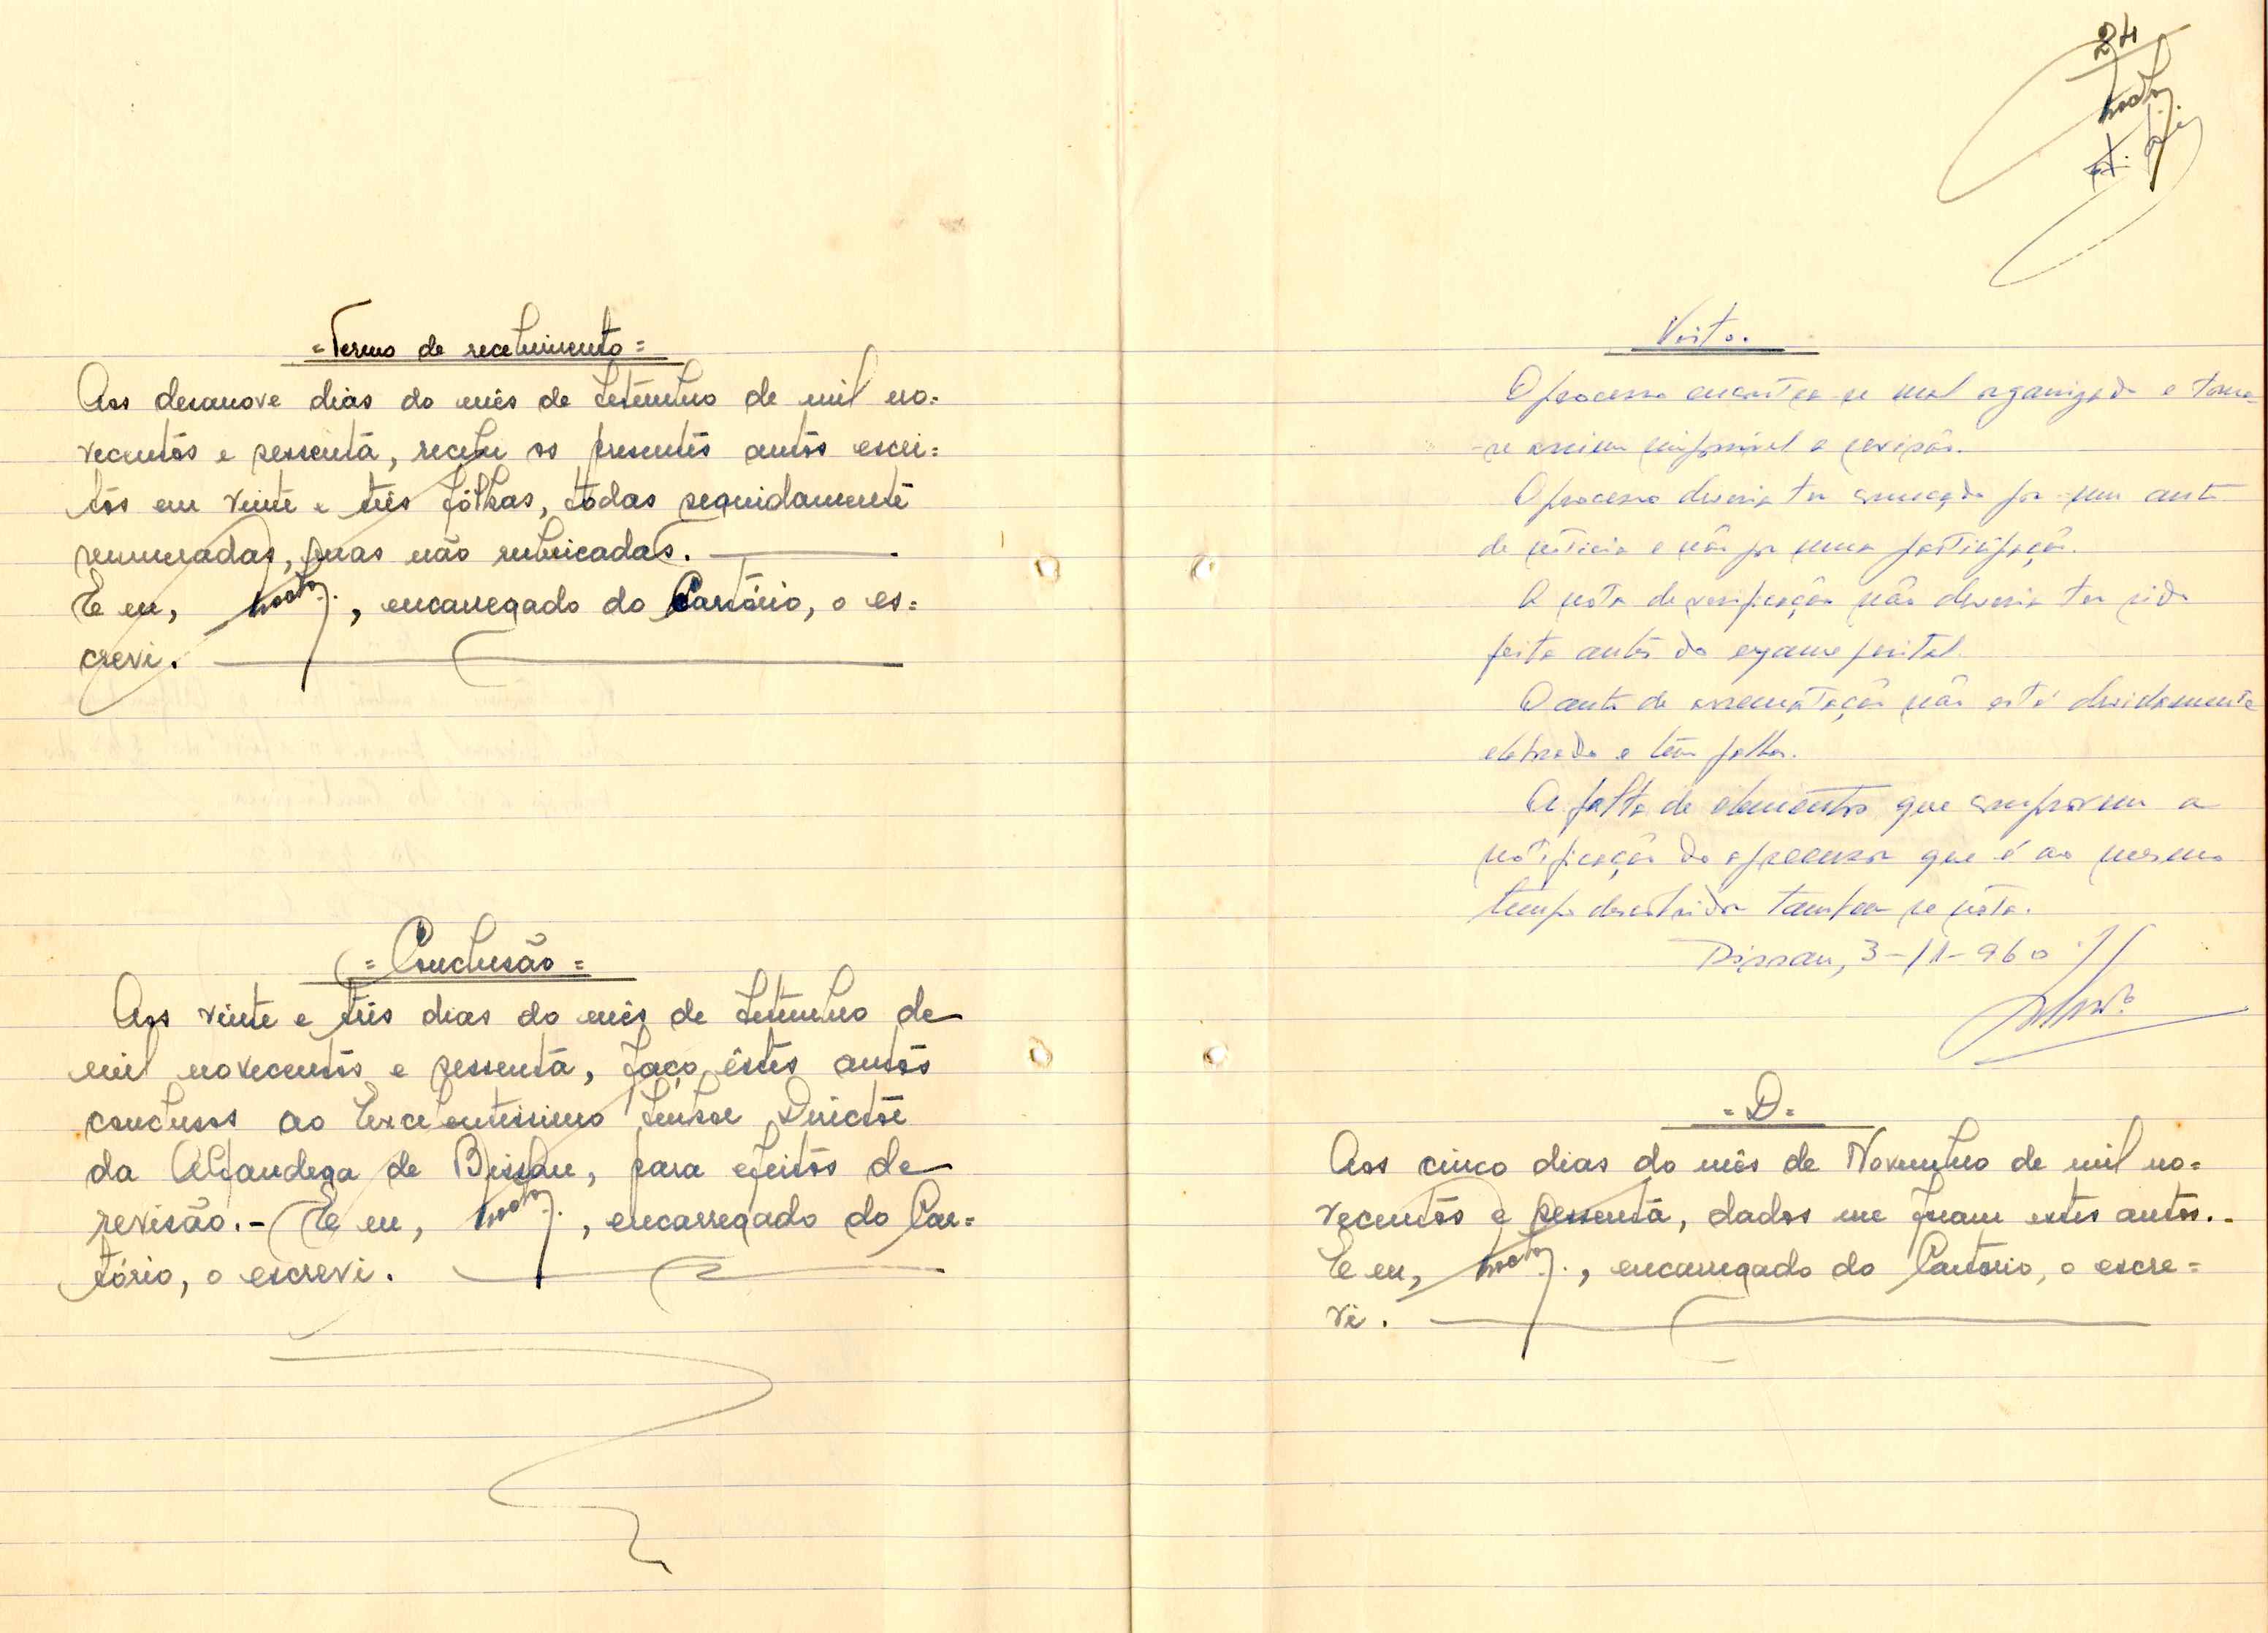 =Termo de recebimento=
Aos desanove dias do mês de Setembro de mil no=
vecentos e sessenta, recebi os presentes autos escri=
tos em vinte e três fôlhas, todas seguidamente
numeradas, mas não rubricadas.
E eu, , encarregado do Cartório, o es=
crevi.
=Conclusão=
Aos vinte e três dias do mês de Setembro de
mil novecentos e sessenta, faço êstes autos
conclusos ao Excelentissimo Senhor Director
da Alfandega de Bissau, para efeitos de
revisão.- E eu, , encarregado do Car=
tório, o escrevi.
24
Visto.
O processo encontra se mal organizado e torna-
-se assim impossivel a revisão.
O processo deveria ter começado por um auto
de noticia e não por uma participação.
A nota de verificação não deveria ter sido
feita antes do exame pericial.
O auto de arrematação não está devidamente
elaborado e tem falhas.
A falta de elementos que comprovem a
notificação do apreensor que é ao mesmo
tempo descobridor tambem se nota.
Bissau, 3-11-960
=D=
Aos cinco dias do mês de Novembro de mil no=
vecentos e sessenta, dados me foram estes autos.-
E eu, , encarregado do Cartorio, o escre=
vi.